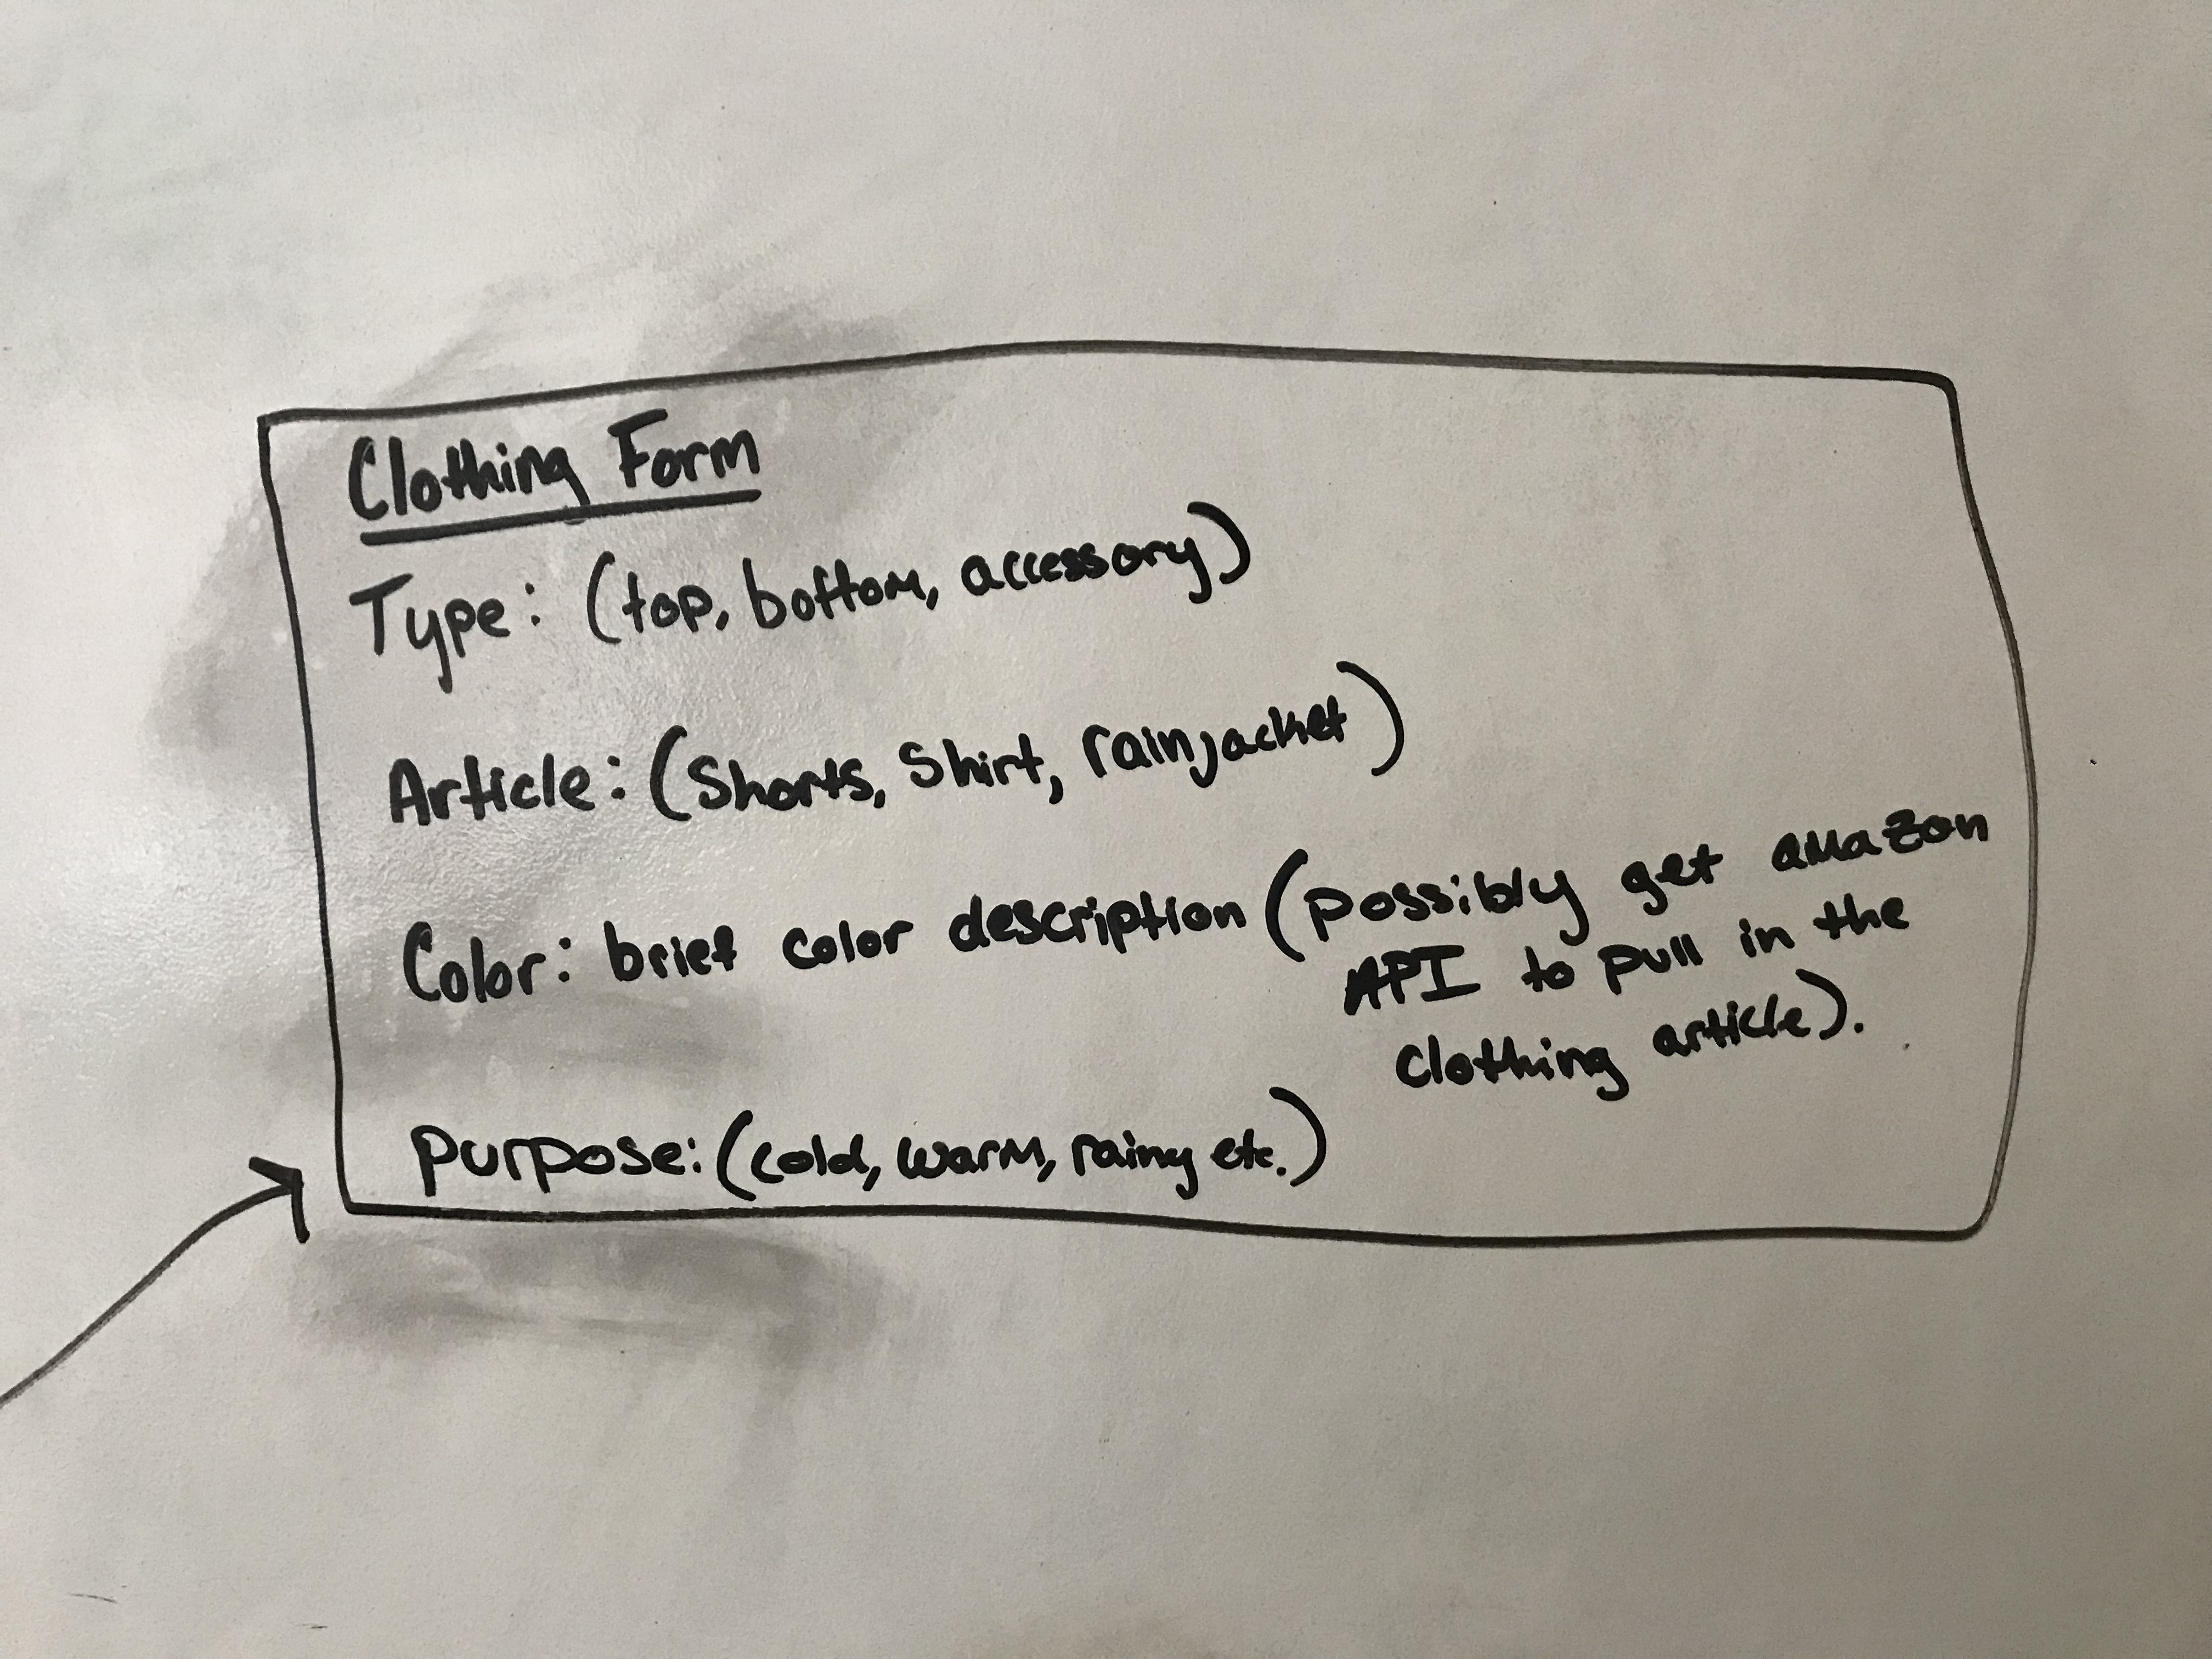 Clothing Form
Type: (top, bottom, accessory)
Article: (Shorts, Shirt, rainjacket)
Color: brief color description (possibly get amazon
API to pull in the
clothing article).
purpose: (cold, warm, rainy etc.)